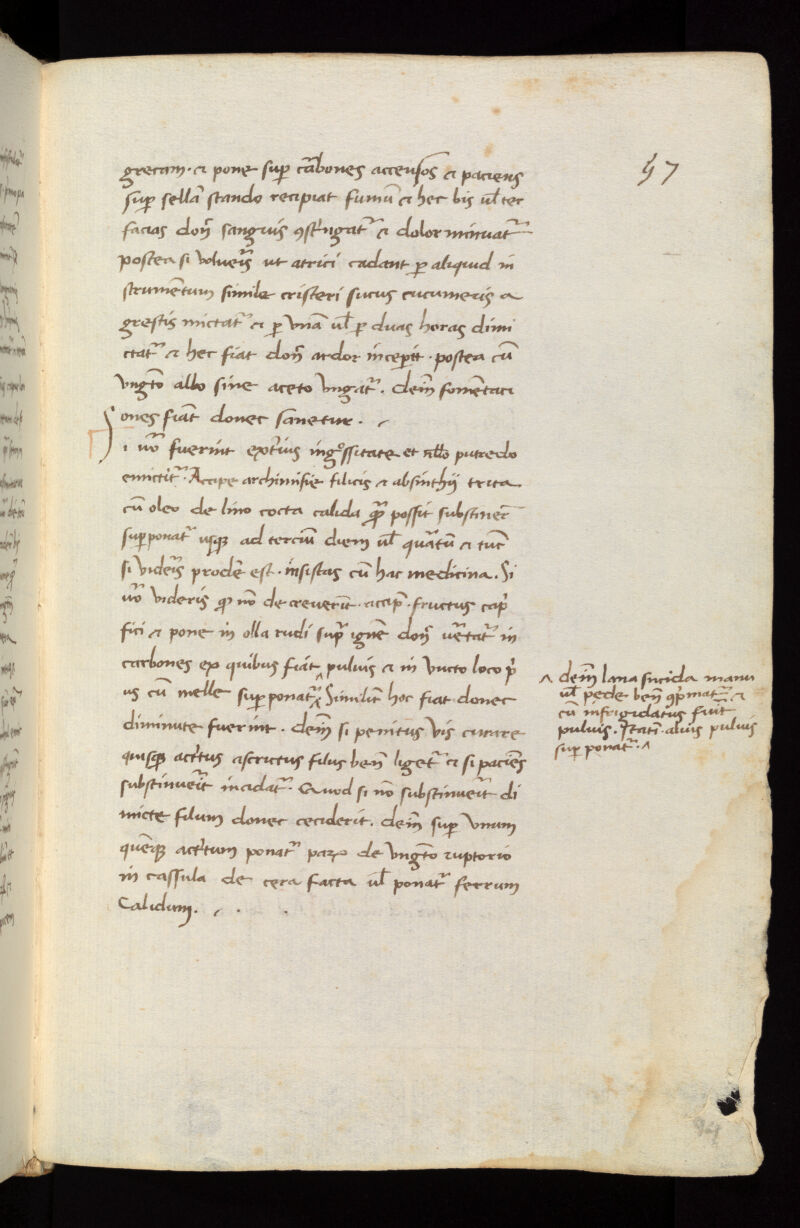 97
grecam. et pone sup carbones accensos et paciens
sup sellã stando recipiat fumũ et hec bis ul ter
facias donꝫ sanguis ꝯstringat᷑ et dolor minuat᷑
postea si volueris ut atrici cadant p aliquid in
strumentum simile cristeri sucus cucumeris a
grestis mictat᷑ et p vnã ul p duas horas dimi
ctat᷑ et hec fiat donꝫ ardor inceperit. postea cũ
vngẽto albo sine aceto vngat᷑. deinde fomẽtaci
ones fiãt donec sanetur.
Si uº fuerint extrius et nulla putredo
emictit᷑. Accipe archimisie filicis et absinthij trita
cũ oleo de lino cocta calida possit substinere
sup ponat᷑ usqꝫ ad terciũ diem ul quartũ et tũc
si videris prodest. insistas cũ hac medicina. Si
uº videris qꝫ nõ decreuerit. accipe. fructus
fici et pone in olla rudi supra ignẽ donꝫ in
carbones ex quibus fiat ^ puluis et in vncto loco p̃
us cũ melle sup ponat᷑. Similiter hoc fiat donec
diminute fuerint. deinde si penitus vis curare
actritus filus benꝫ liget᷑ et si paciẽs
substinuerit incidat᷑. Quod si nõ substinuerit di
micte filum donec ceciderit. deinde sup vnum
quemqꝫ actritum ponat᷑ parum de vngẽto ruptorio
in cassula de cera facta ul ponat᷑ ferrum
Calidum.
^ deinde lana sucida manu
ul pede benꝫ ꝯprimat᷑ et
cũ infrigidatus fuerit
puluis. Statim alius puluis
sup ponat᷑. ^
94